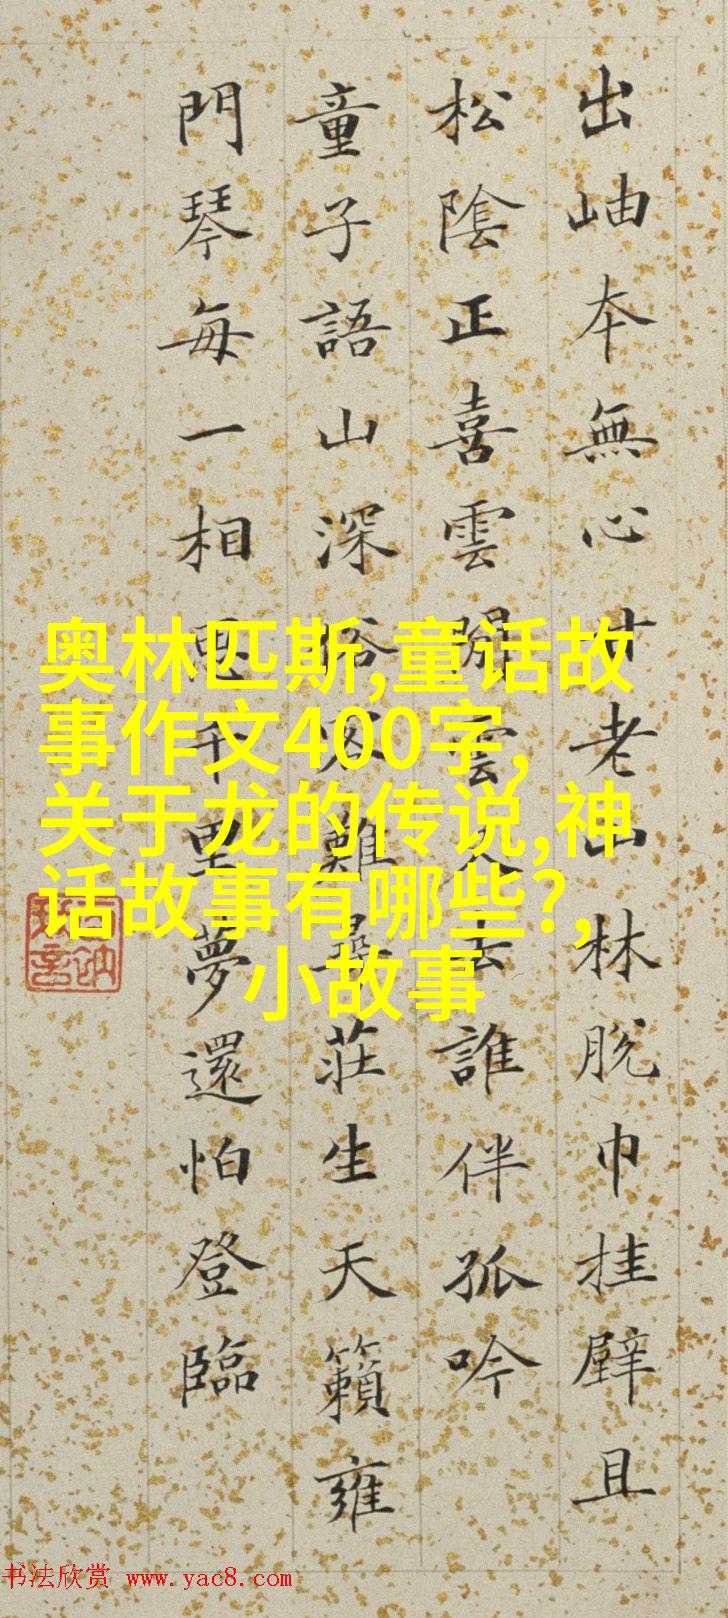 出岫本無心甘老山林脫巾挂壁且
松陰正喜雲閒雲去誰伴孤吟
童子語山深俗客難尋莊生天籟雍
門琴每一相思千里夢還怕登臨
奥林匹斯,童话故
事作文400字,
关于龙的传说,神
话故事有哪些?,
小故事
书法欣赏 www.yac8.com